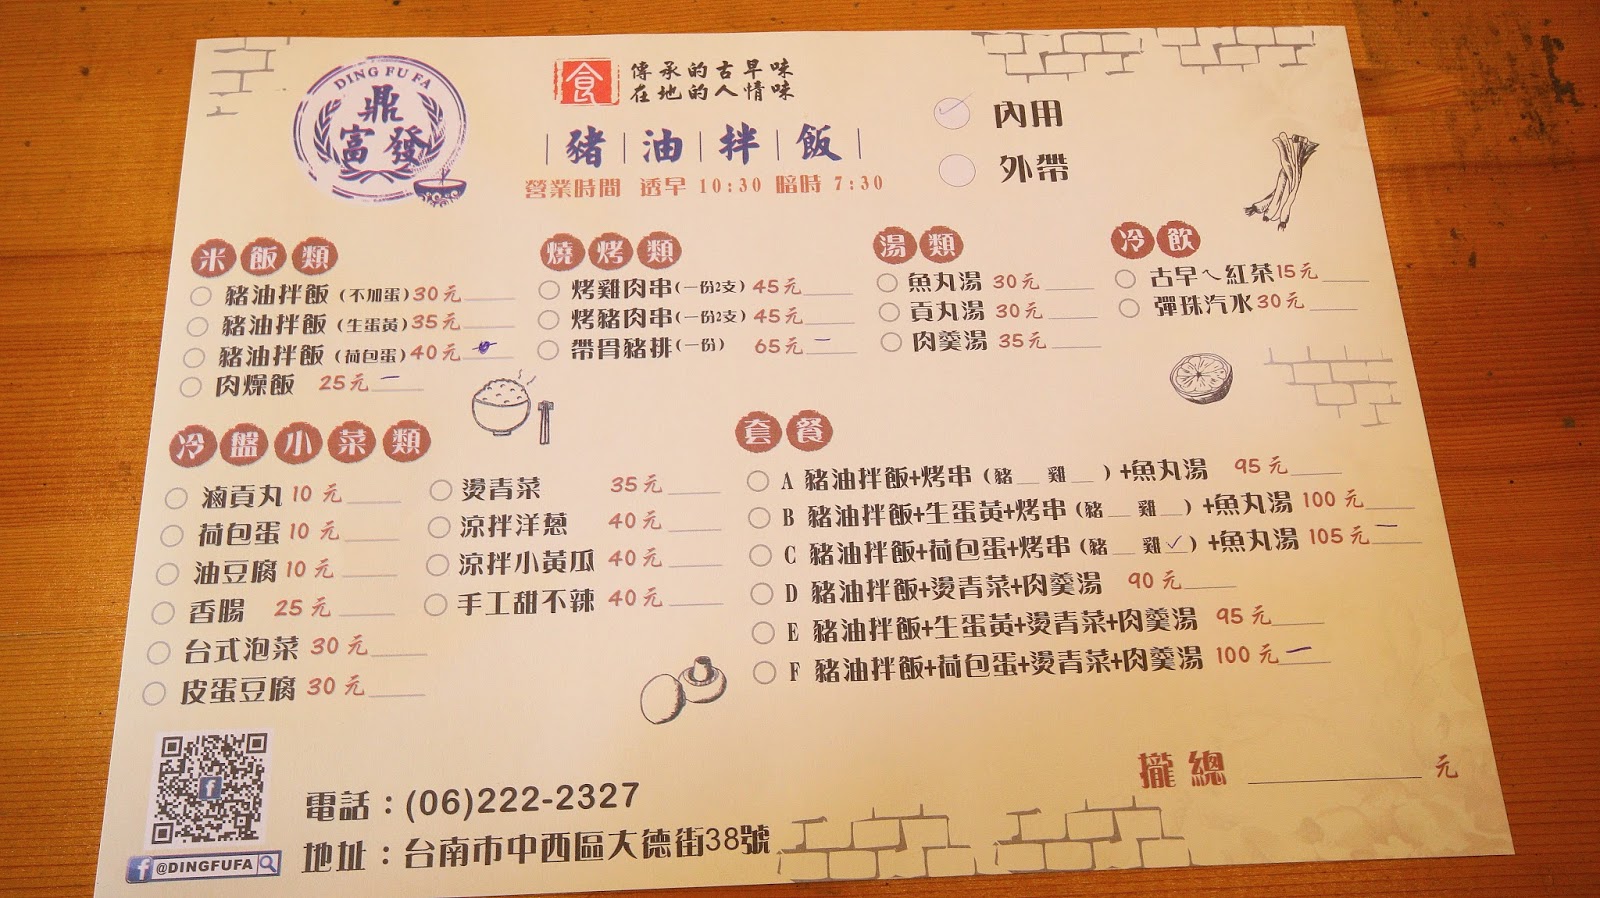 DING FU FA
鼎
富發
食
傳承的古早味
在地的人情味
|豬|油|拌|飯|
營業時間 透早 10:30 暗時 7:30
內用
外帶
米飯類
豬油拌飯(不加蛋)30元
豬油拌飯(生蛋黃)35元
豬油拌飯(荷包蛋)40元
肉燥飯 25元 一
燒烤類
烤雞肉串(一份2支)45元
烤豬肉串(一份2支)45元
帶骨豬排(一份) 65元 一
湯類
魚丸湯 30元
貢丸湯 30元
肉羹湯 35元
冷飲
古早ㄟ紅茶15元
彈珠汽水30元
冷盤小菜類
滷貢丸 10元
荷包蛋 10元
油豆腐 10元
香腸 25元
台式泡菜 30元
皮蛋豆腐 30元
燙青菜 35元
涼拌洋蔥 40元
涼拌小黃瓜 40元
手工甜不辣 40元
套餐
A 豬油拌飯+烤串(豬__ 雞__)+魚丸湯 95元
B 豬油拌飯+生蛋黃+烤串(豬__ 雞__)+魚丸湯 100元
C 豬油拌飯+荷包蛋+烤串(豬__ 雞✓)+魚丸湯 105元 一
D 豬油拌飯+燙青菜+肉羹湯 90元
E 豬油拌飯+生蛋黃+燙青菜+肉羹湯 95元
F 豬油拌飯+荷包蛋+燙青菜+肉羹湯 100元 一
攏總 ______元
f @DINGFUFA
電話：(06)222-2327
地址：台南市中西區大德街38號